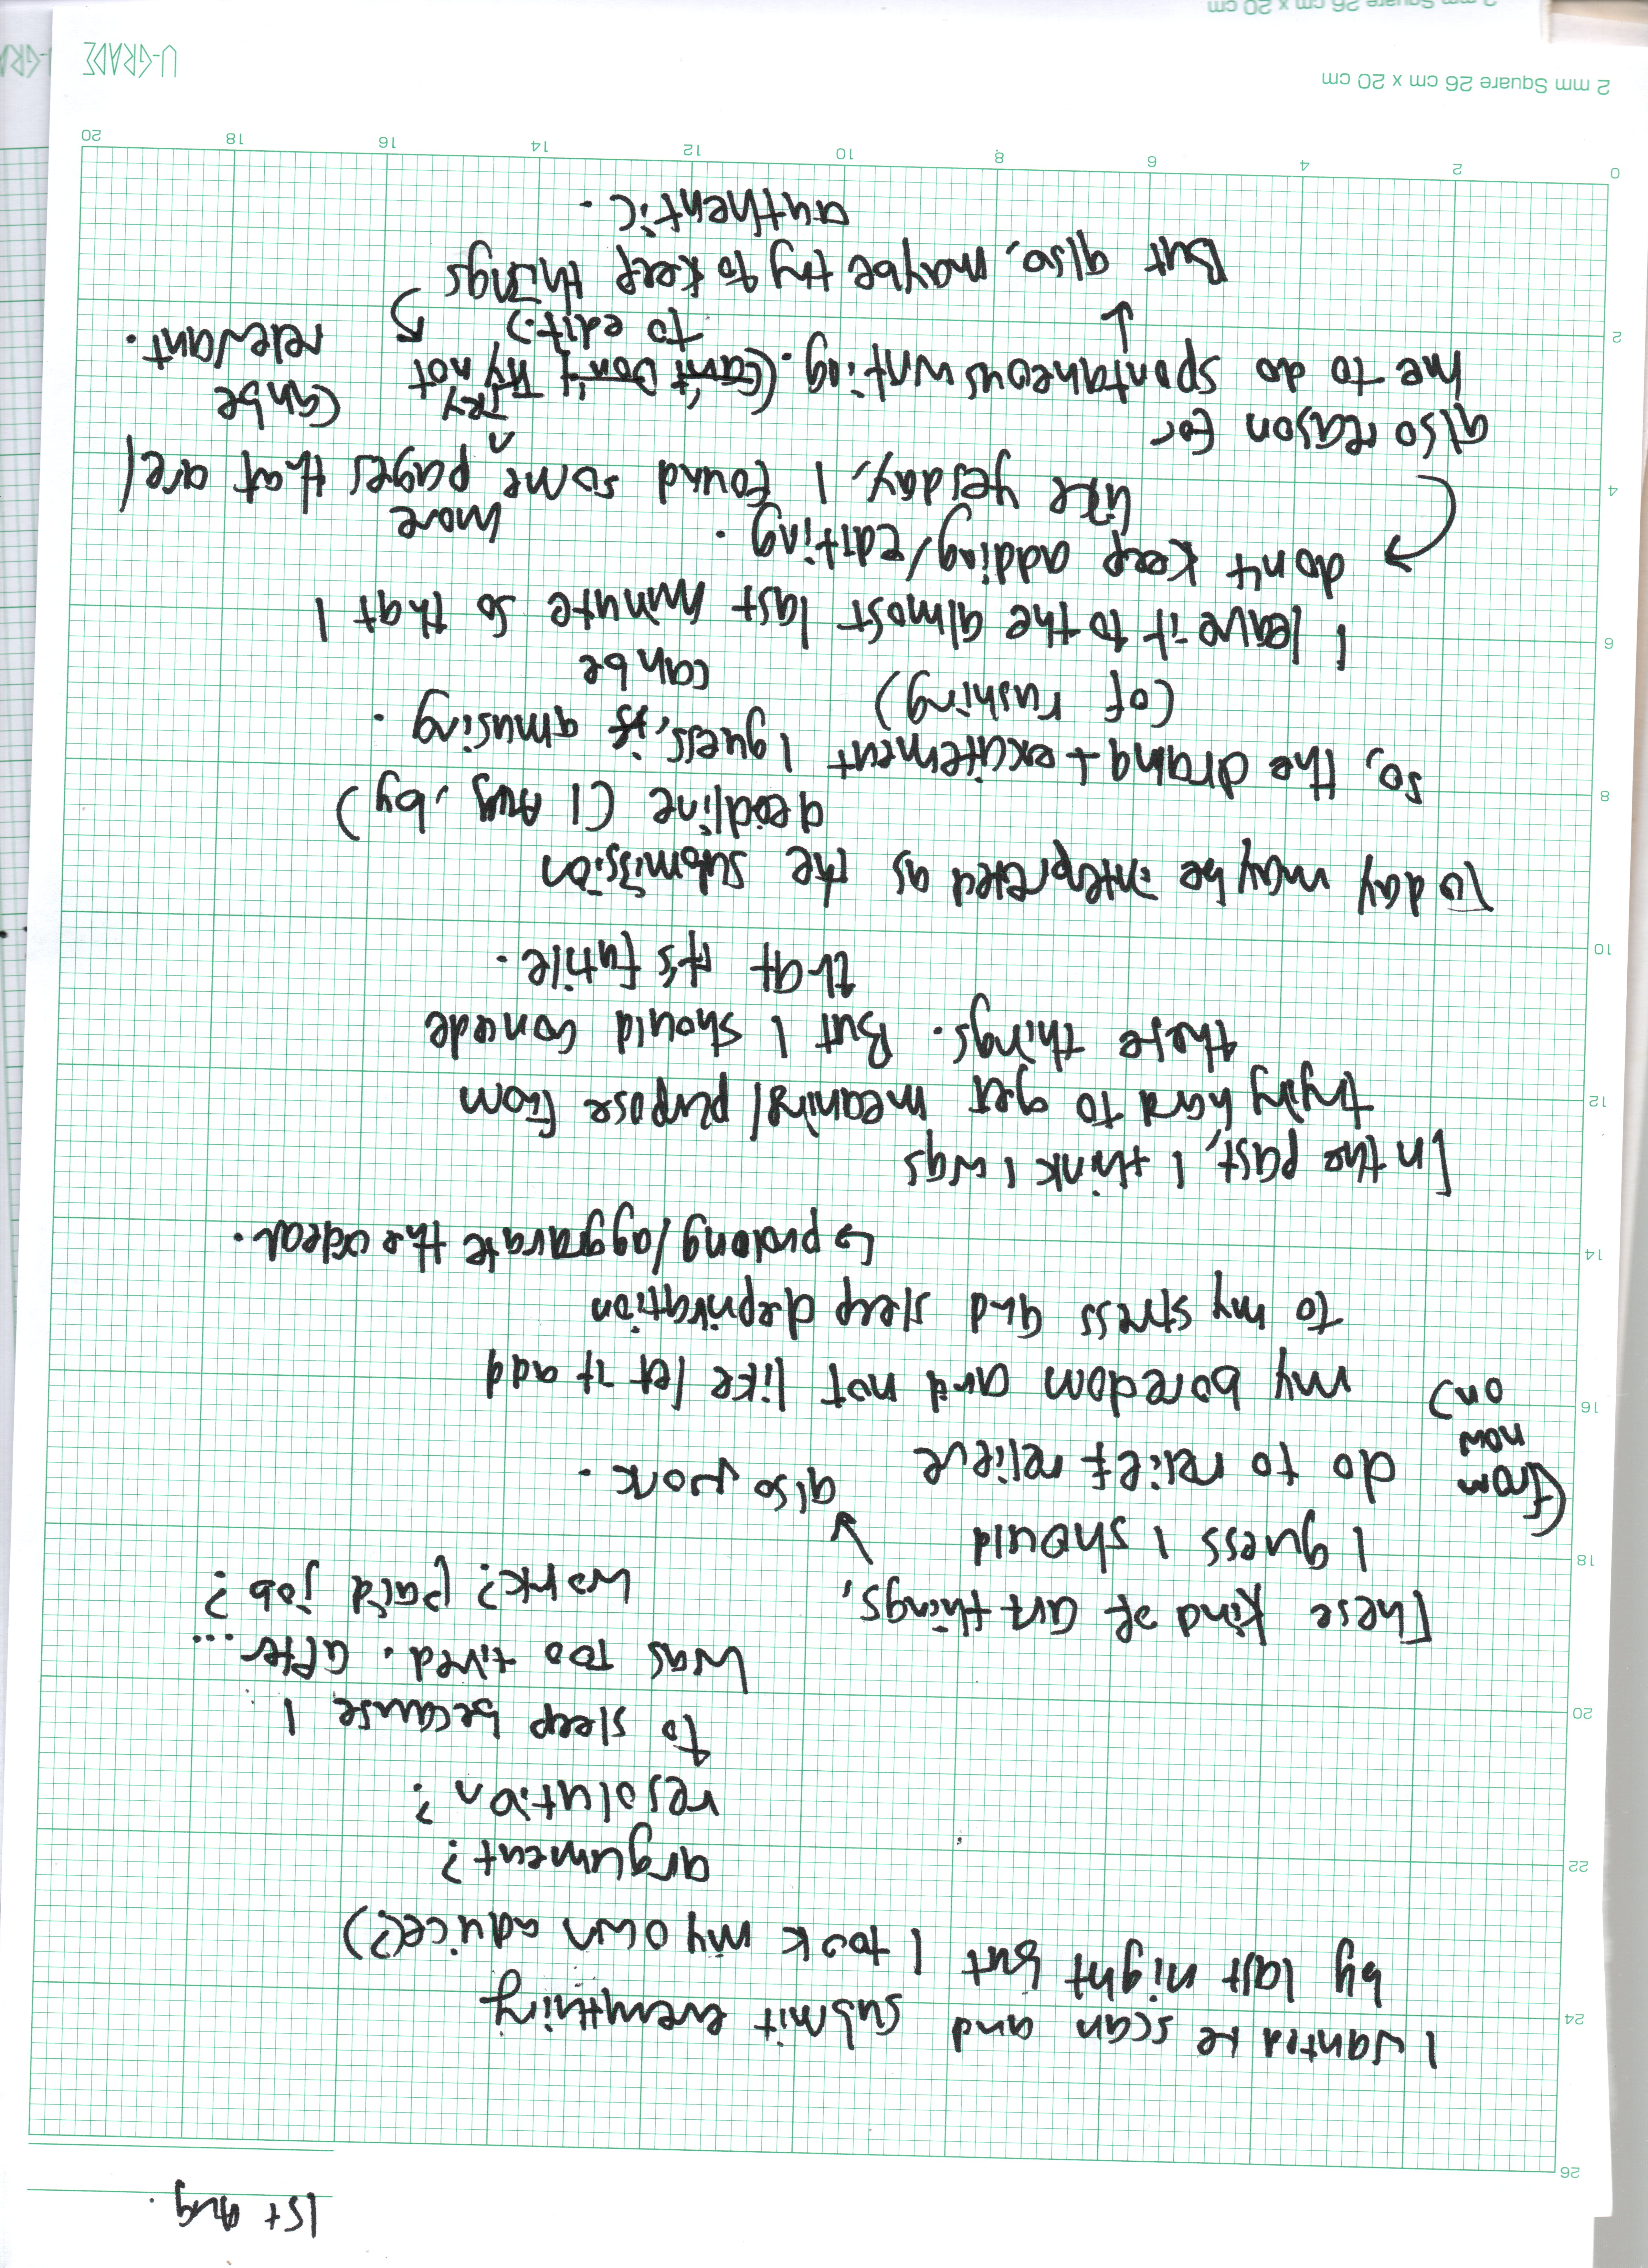 1st Aug.
I wanted to scan and submit everything
by last night but I took my own advice(?)
argument?
resolution?
to sleep because I
was too tired. after ...
work? (paid job?
also work.
These kind of art things,
I guess I should
(from now on)
do to relief relieve
my boredom and not like let it add
to my stress and sleep deprivation
↳ prolong/aggravate the odeal.
In the past, I think I was
trying hard to get meaning/purpose from
these things. But I should concede
that it's futile.
Today may be interpreted as the submission
deadline (1 Aug, by)
So, the drama + excitement I guess, is amusing.
(of rushing)
can be
I leave it to the almost last minute so that I
don't keep adding/editing.
more
like yesday, I found some pages that are/
can be
relevant.
also reason for
me to do spontaneous writing. (Can't Don't Try not
TRY
to edit.)
But also, maybe try to keep things
authentic.
0 2 4 6 8 10 12 14 16 18 20
2
4
6
8
10
12
14
16
18
20
22
24
26
2 mm Square 26 cm x 20 cm
U-GRADE
2 mm Square 26 cm x 20 cm
U-GRA